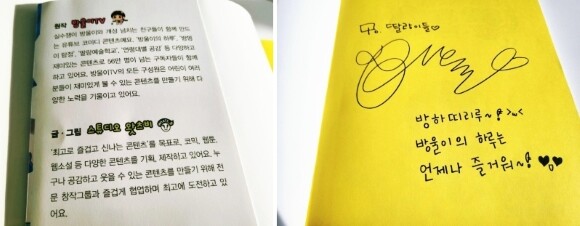 원작 방울이TV
실수쟁이 방울이와 개성 넘치는 친구들이 함께 만드
는 유튜브 코미디 콘텐츠예요. '방울이의 하루', '방방
이 탐정', '별람예술학교', '연령대별 공감' 등 다양하고
재미있는 콘텐츠로 56만 명이 넘는 구독자들이 함께
하고 있어요. 방울이TV의 모든 구성원은 어린이 여러
분들이 재미있게 볼 수 있는 콘텐츠를 만들기 위해 다
양한 노력을 기울이고 있어요.
글·그림 스튜디오 왓츠비
'최고로 즐겁고 신나는 콘텐츠'를 목표로, 코믹, 웹툰,
웹소설 등 다양한 콘텐츠를 기획, 제작하고 있어요. 누
구나 공감하고 웃을 수 있는 콘텐츠를 만들기 위해 전
문 창작그룹과 즐겁게 협업하며 최고에 도전하고 있
어요.
딸라이들♡
방하 띠리루~ >_<
방울이의 하루는
언제나 즐거워~ ♥♥